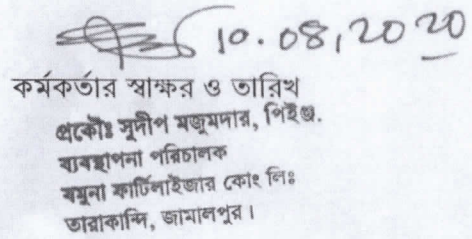 10.08,2020
কর্মকর্তার স্বাক্ষর ও তারিখ
প্রকৌঃ সুদীপ মজুমদার, পিইঞ্জ.
ব্যবস্থাপনা পরিচালক
যমুনা ফার্টিলাইজার কোং লিঃ
তারাকান্দি, জামালপুর।